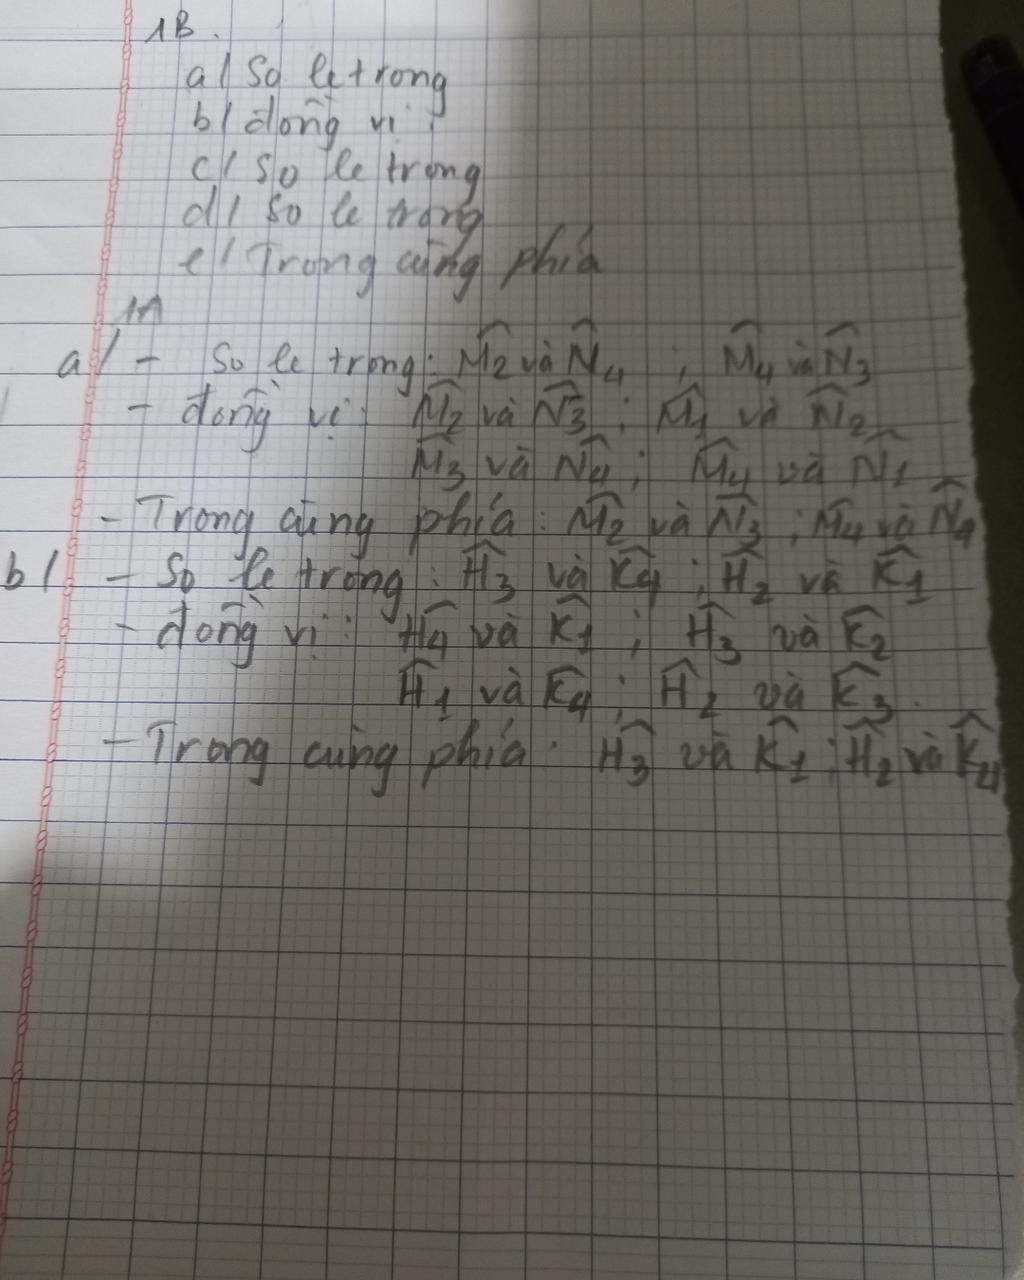 1B.
a/ So le trong
b/ đồng vị
c/ So le trong
d/ So le trong
e/ Trong cùng phía
1A
a/ - So le trong: M̂2 và N̂4 ; M̂4 và N̂3
- đồng vị: M̂2 và N̂3 ; M̂1 và N̂2
M̂3 và N̂4 ; M̂4 và N̂1
- Trong cùng phía: M̂2 và N̂3 ; M̂4 và N̂4
b/ - So le trong: Ĥ3 và K̂4 ; Ĥ2 và K̂1
- đồng vị: Ĥ4 và K̂1 ; Ĥ3 và K̂2
Ĥ1 và K̂4 ; Ĥ2 và K̂3.
- Trong cùng phía: Ĥ3 và K̂1 ; Ĥ2 và K̂4